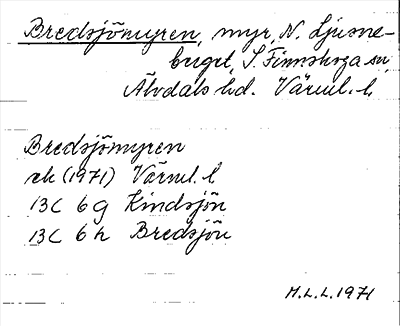 Bredsjömyren, myr, N. Ljusne-
berget, S. Finnskoga sn,
Älvdals hd. Värml. l.
Bredsjömyren
ek (1971) Värml. l
13C 6g Kindsjön
13C 6h Bredsjön
M.L.L. 1971